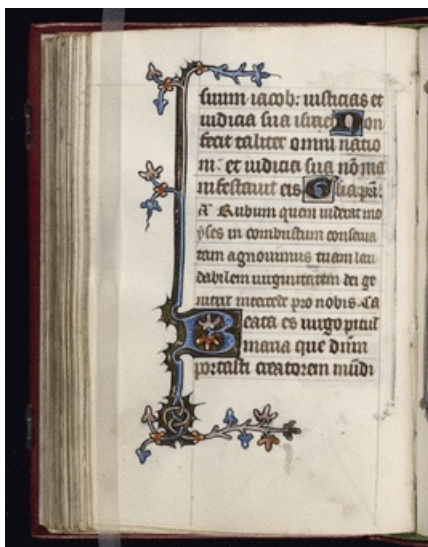 suum iacob: iusticias et
iudicia sua israel Non
fecit taliter omni natio
ni: et iudicia sua nō ma
nifestauit eis Glia pri.
A Rubum quem uiderat mo
yses in combustum conserua
tam agnouimus tuam lau
dabilem uirginitatem dei ge
nitrix intercede pro nobis. Ca
Beata es uirgo
maria que dūm
portasti creatorem mūdi